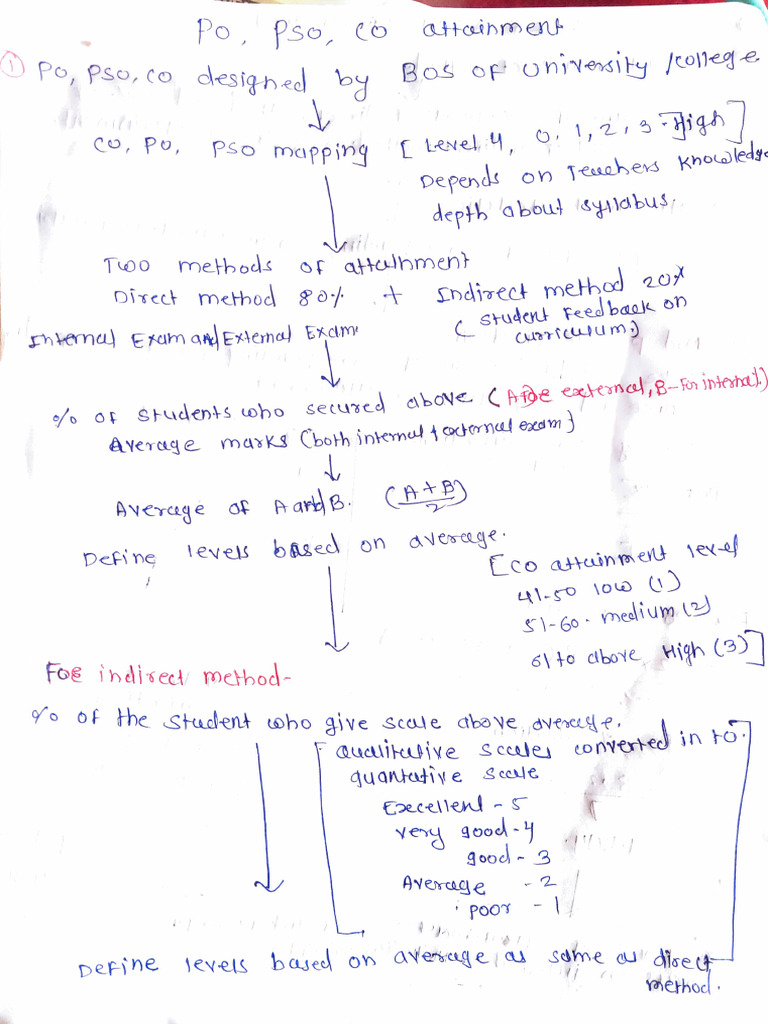 PO, PSO, CO attainment
① PO, PSO, CO designed by BOS OF University /college
CO, PO, PSO mapping [Level 4, 0, 1, 2, 3-High]
Depends on Teachers Knowledge
depth about syllabus.
Two methods of attainment
Direct method 80% + Indirect method 20%
(student Feedback on
curriculum.)
Internal Exam and External Exam
% of students who secured above (A For external, B-For internal)
Average marks (both internal + external exam)
Average of A and B. (A+B)/2
Define levels based on average.
[CO attainment level
41-50 low (1)
51-60. medium (2)
61 to above High (3)]
For indirect method-
% of the student who give scale above average.
[qualitative scales converted in to.
quantative scale
Excellent - 5
very good - 4
good - 3
Average - 2
poor - 1]
Define levels based on average as same as direct
method.